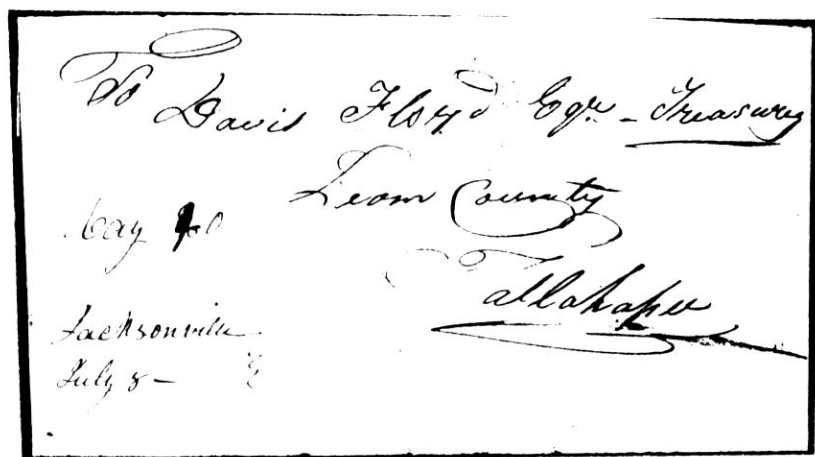 To Davis Floyd Esqr - Treasurer
Leon County
Tallahassee
Jacksonville
July 8 -